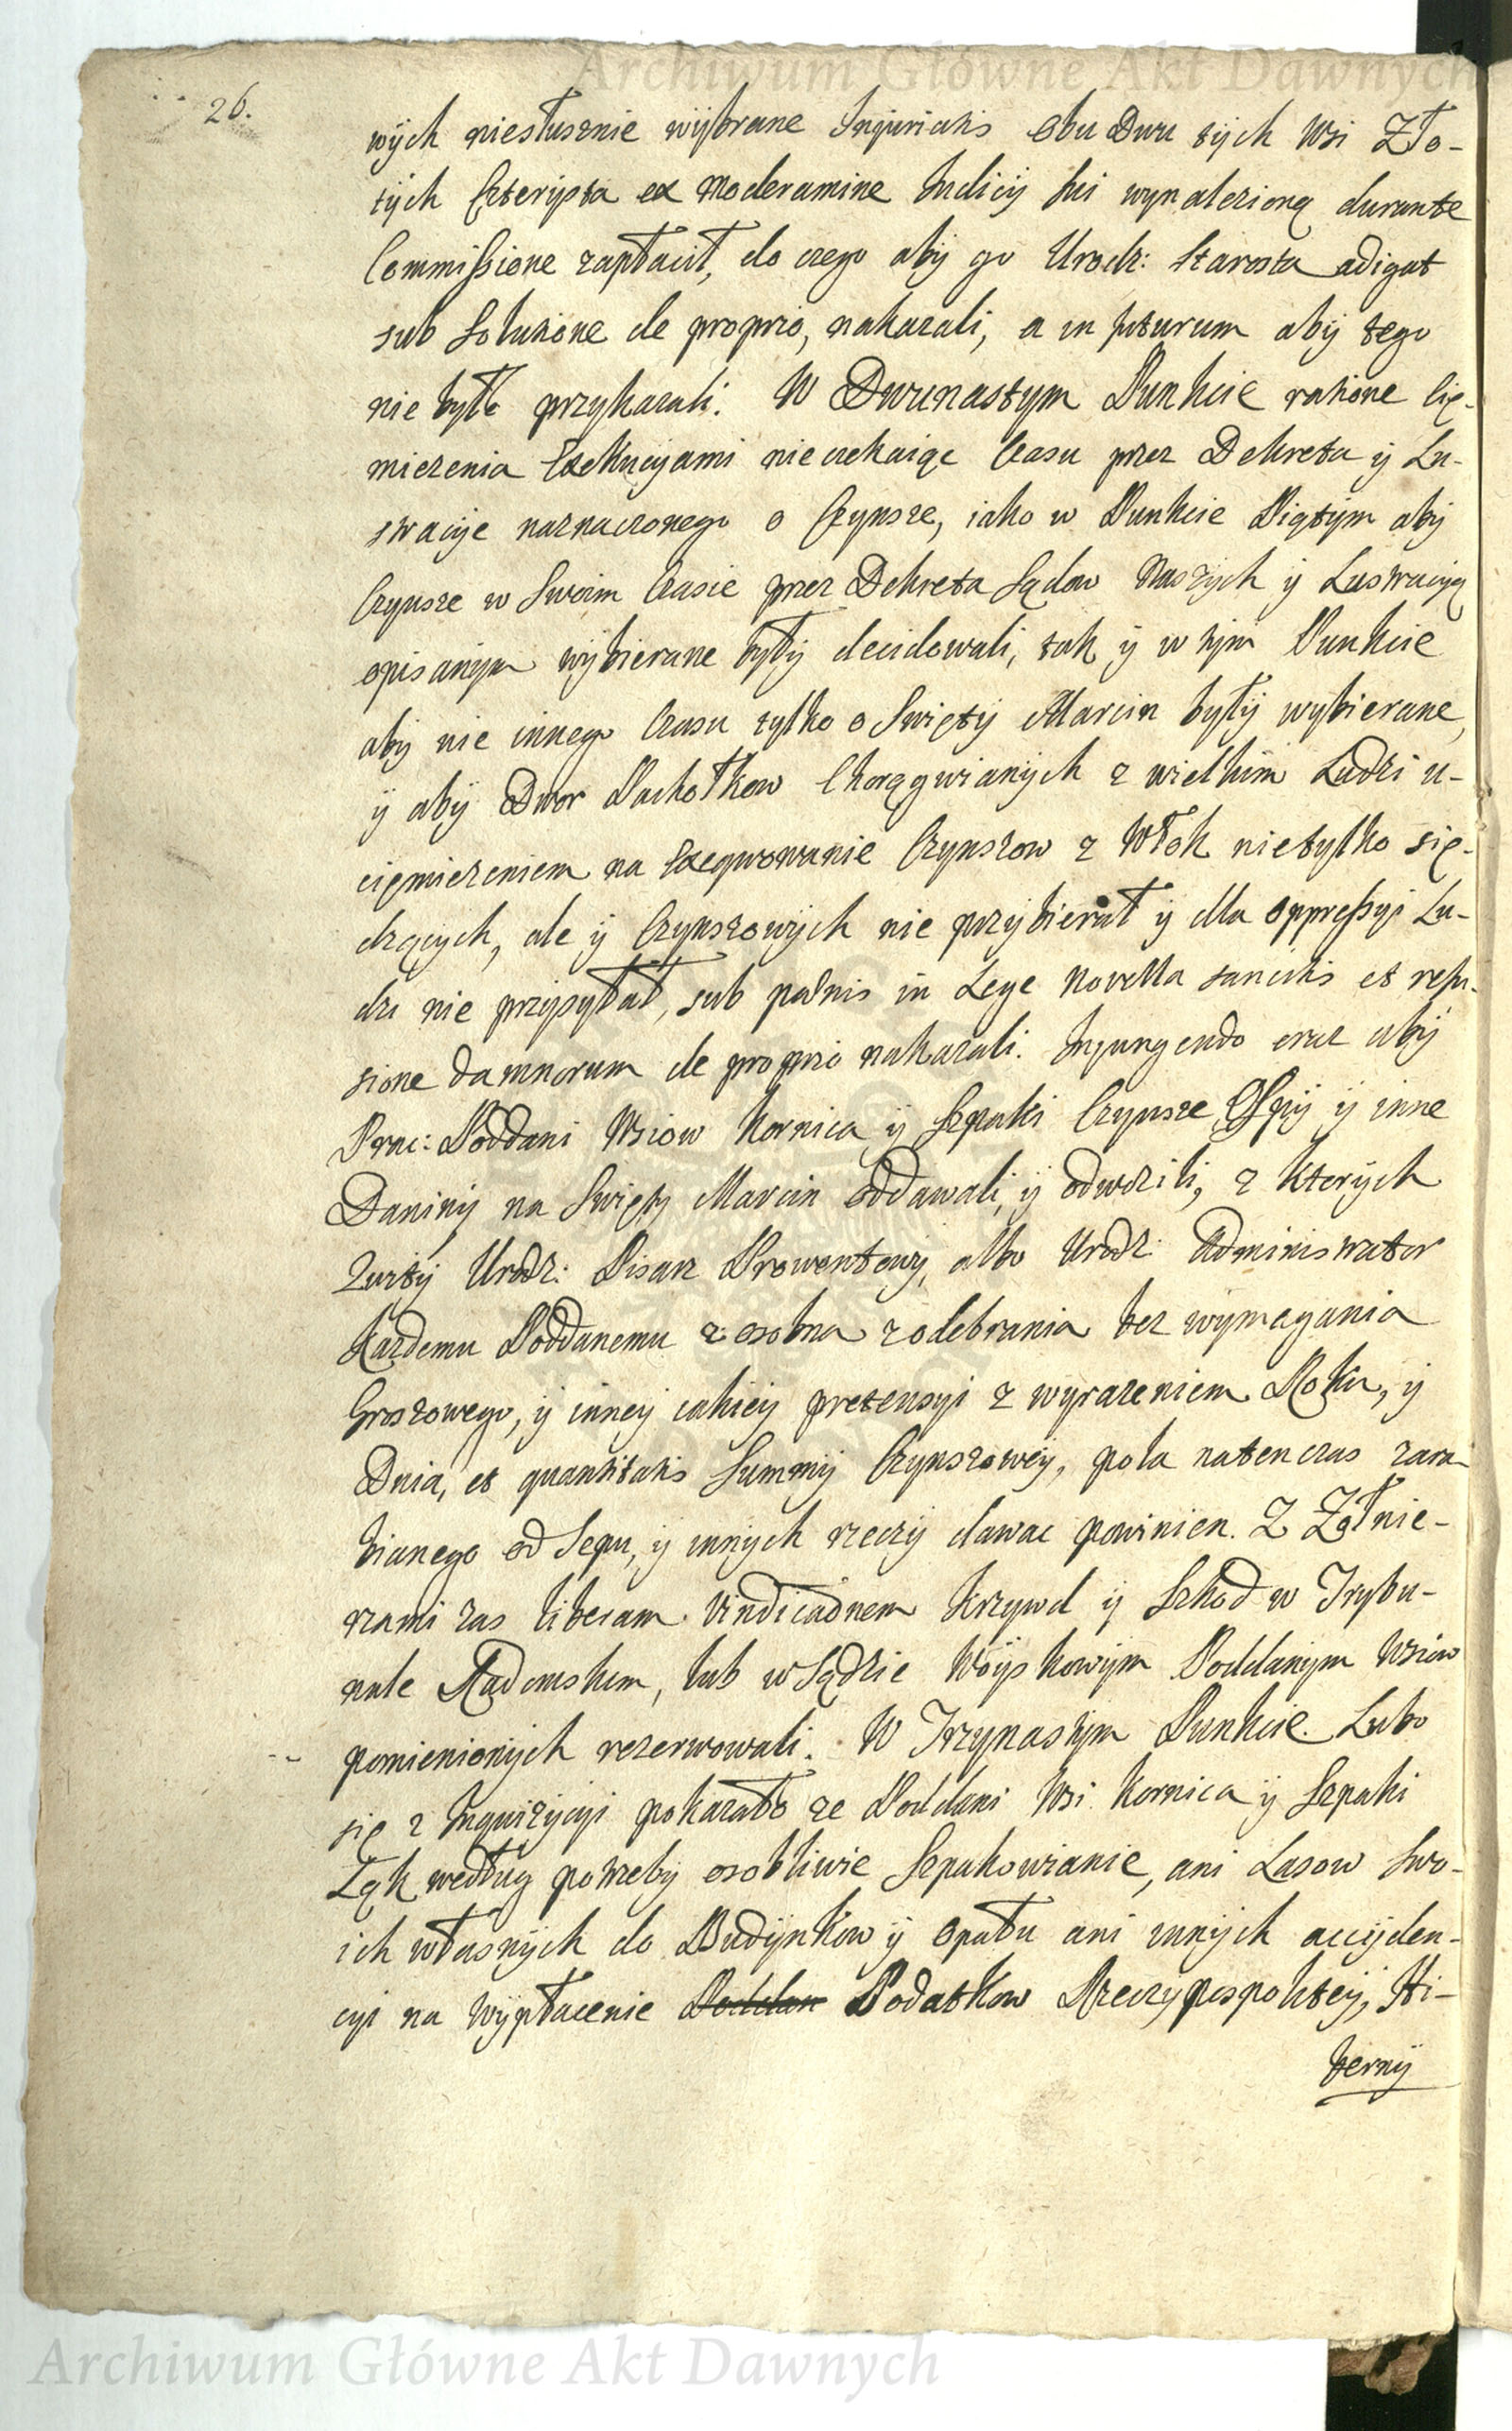 Archiwum Główne Akt Dawnych
26.
wÿch niesłusznie wÿbrane Injuriatis Obu Dwu tÿch Wsi Zło-
tÿch Czterÿsta ex Moderamine Indicÿ sui wynalezioną durante
Commissione zapłacił, do czego abÿ go Urodz: Starosta adigat
sub Solutione de proprio, nakazali, a in futurum abÿ tego
nie było przykazali. W Dwunastym Punkcie ratione Cię-
mięzenia Exekucyami nieczekaiąc Czasu przez Dekreta ÿ Lu-
stracije naznaczonego o Czynsze, iako w Punkcie Piątÿm abÿ
Czynsze w Swoim Czasie przez Dekreta Sądow Naszÿch ÿ Lustracÿą
opisanÿm wÿbierane bÿłÿ decidowali, tak ÿ w tÿm Punkcie
abÿ nie innego Czasu tylko o Swiętÿ Marcin byłÿ wybierane,
ÿ abÿ Dwor Pachołkow Chorągwianÿch z wielkim Ludzi u-
cięmięzeniem na Exeqwowanie Czynszow z Włok nietylko sie-
dzących, ale ÿ Czynszowÿch nie przÿbierał ÿ dla Oppressyi Lu-
dzi nie przÿsyłał, sub pœnis in Lege Novella sancitis et refu-
sione damnorum de proprio nakazali. Injungendo oraz abÿ
Prac: Poddani Wsiow Kornica ÿ Szpaki Czynsze Osÿpÿ ÿ inne
Daninÿ na Swięty Marcin oddawali, ÿ odwozili, z ktorÿch
Kwitÿ Urodz: Pisarz Prowentowÿ, albo Urodz: Administrator
każdemu Poddanemu z osobna z odebrania bez wymagania
Groszowego, ÿ inneÿ iakieÿ pretensyi z wyrazeniem Roku, ÿ
Dnia, et quantitatis Summÿ Czynszoweÿ, pola natenczas zara-
bianego od Sepu, ÿ innÿch rzeczÿ dawac powinien. Z Zołnie-
rzami zas liberam Vindicaonem Krzywd ÿ Szkod w Trybu-
nale Radomskim, lub w Sądzie Woÿskowÿm Poddanÿm Wsiow
pomienionÿch rezerwowali. W Trzynastÿm Punkcie. Lubo
się z Inquizycyi pokazało ze Poddani Wsi Kornica ÿ Szpaki
Łąk według potrzebÿ osobliwie Szpakowianie, ani Lasow Swo-
ich własnÿch do Budÿnkow ÿ Opału ani innÿch accÿden-
cyi na Wÿpłacenie Poddan Podatkow Rzeczypospoliteÿ, Hi-
bernÿ
Archiwum Główne Akt Dawnych